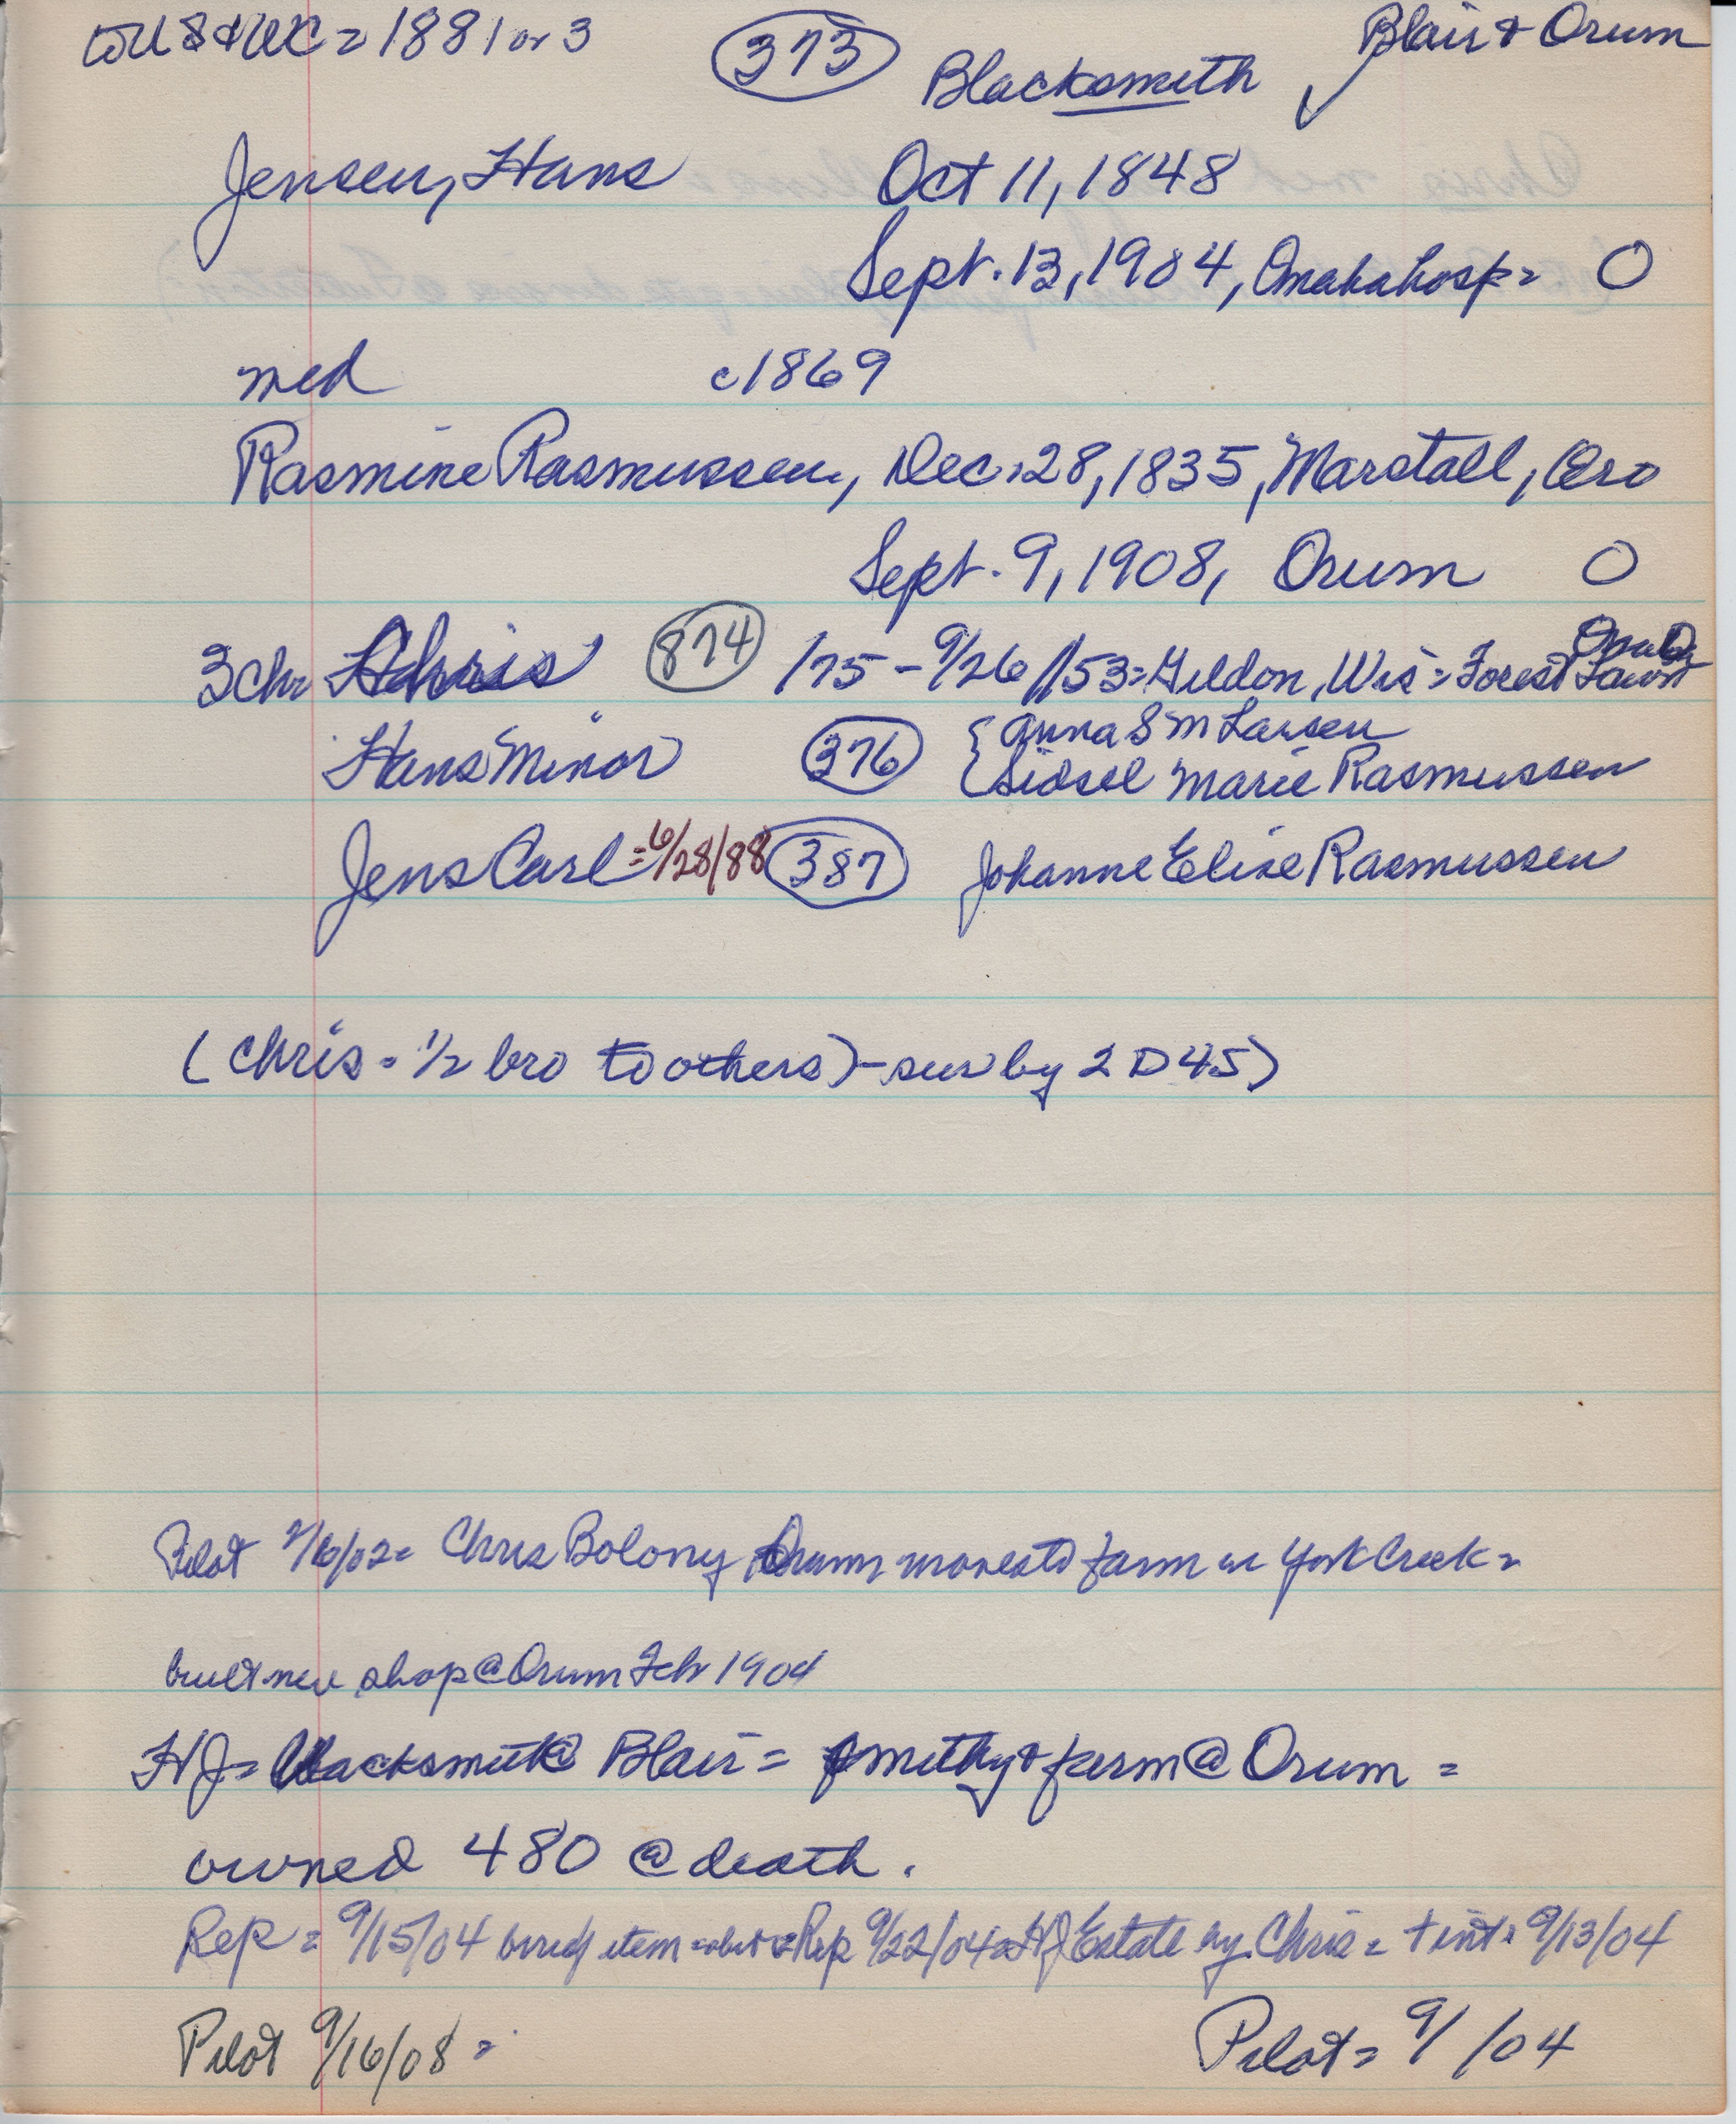 to U S & WC = 1881 or 3 (373) Blair & Orum
Blacksmith ✓
Jensen, Hans Oct 11, 1848
Sept. 13, 1904, Omaha hosp = O
med c1869
Rasmine Rasmussen, Dec. 28, 1835, Marstall, Æro
Sept. 9, 1908, Orum O
3 chr Chris (874) /75 - 9/26/53 = Weldon, Wis = Forest Lawn Omaha
Hans Minor (376) { Anna S M Larsen
{ Sidsel Marie Rasmussen
Jens Carl = 6/28/88 (387) Johanne Elise Rasmussen
(Chris = 1/2 bro to others) - sur by 2 D 4 S)
Pilot 2/6/02 = Chris Bolony Orum moves to farm in York Creek =
built new shop @ Orum Feb 1904
HJ = blacksmith @ Blair = smithy & farm @ Orum =
owned 480 @ death.
Rep = 9/15/04 item = obit = Rep 9/22/04 = HJ Estate by Chris = + int = 9/13/04
Pilot 9/16/08 = Pilot = 9/ /04